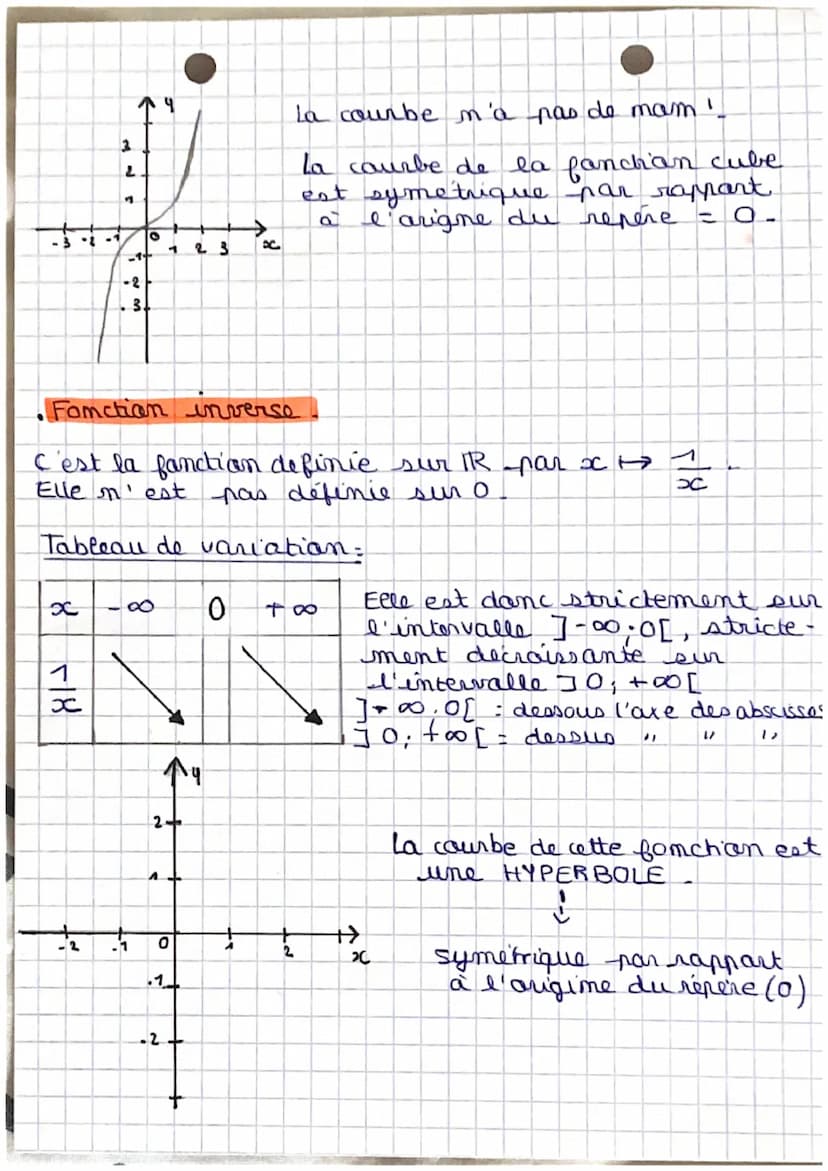 y
3
2
1
-3 -2 -1 0 1 2 3 x
-1
-2
-3
La courbe n'a pas de nom !
La courbe de la fonction cube
est symétrique par rapport
à l'origne du repère = 0.
. Fonction inverse.
C'est la fonction definie sur ℝ par x ↦ 1/x.
Elle n'est pas définie sur 0.
Tableau de variation:
x -∞ 0 +∞
1/x
Elle est donc strictement sur
l'intervalle ]-∞;0[, stricte-
ment décroissante sur
l'intervalle ]0; +∞[
]-∞;0[ : dessous l'axe des abscisses
]0; +∞[ = dessus " " "
y
2
1
-2 -1 0 1 2 x
-1
-2
La courbe de cette fonction est
une HYPERBOLE.
symétrique par rapport
à l'origine du répère (0)